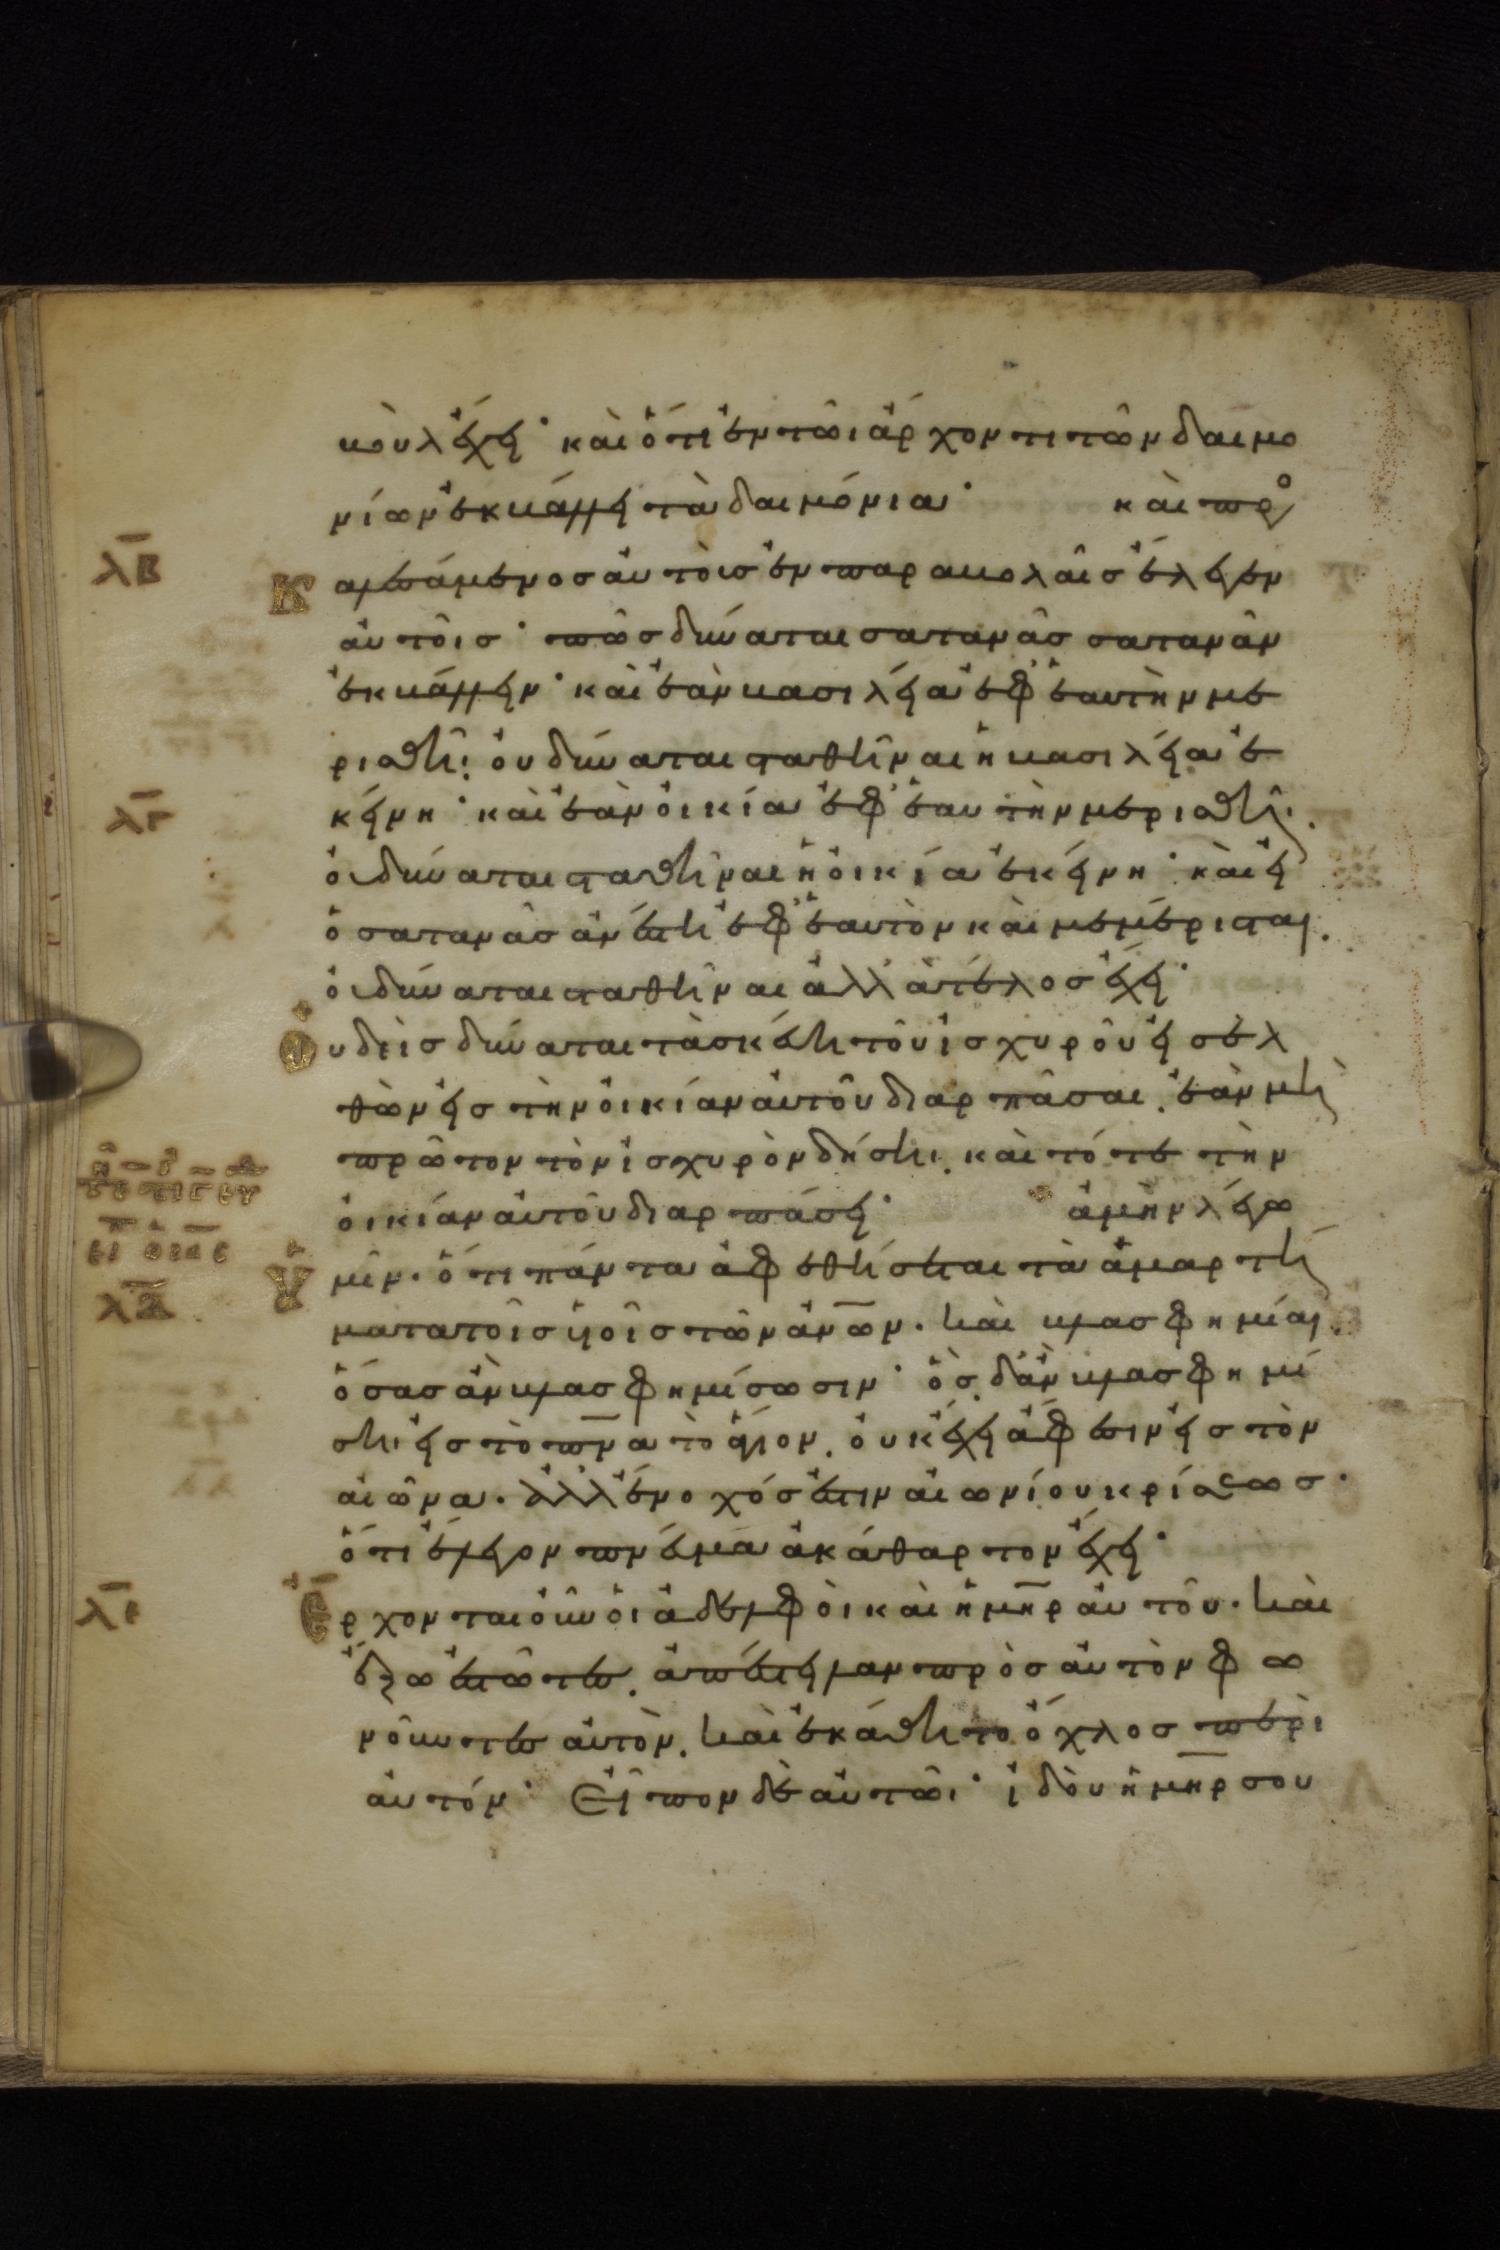 βουλ ἔχει· καὶ ὅτι ἐν τῶι ἄρχοντι τῶν δαιμο
νίων ἐκβάλλει τὰ δαιμόνια· καὶ προ
λβ
Καλεσάμενος αὐτοὺς ἐν παραβολαῖς ἔλεγεν
αὐτοῖς· πῶς δύναται σατανᾶς σατανᾶν
ἐκβάλλειν· καὶ ἐὰν βασιλεία ἐφ' ἑαυτὴν με
ρισθῆ· οὐ δύναται σταθῆναι ἡ βασιλεία ἐ
λγ
κείνη· καὶ ἐὰν οἰκία ἐφ' ἑαυτὴν μερισθῆ·
οὐ δύναται σταθῆναι ἡ οἰκία ἐκείνη· καὶ εἰ
ὁ σατανᾶς ἀνέστη ἐφ' ἑαυτὸν καὶ μεμέρισται.
οὐ δύναται σταθῆναι ἀλλὰ τέλος ἔχει·
Οὐδεὶς δύναται τὰ σκεύη τοῦ ἰσχυροῦ εἰσελ
θὼν εἰς τὴν οἰκίαν αὐτοῦ διαρπᾶσαι. ἐὰν μὴ
πρῶτον τὸν ἰσχυρὸν δήσηι. καὶ τότε τὴν
οἰκίαν αὐτοῦ διαρπάσει· ἀμὴν λέγω
λδ
Ὑμῖν. ὅτι πάντα ἀφεθήσεται τὰ ἁμαρτή
ματα τοῖς υἱοῖς τῶν ἀνων. καὶ βλασφημίαι.
ὅσας ἂν βλασφημίσωσιν· ὃς δ' ἂν βλασφημί
σηι εἰς τὸ πνα τὸ ἅγιον. οὐκ ἔχει ἄφεσιν εἰς τὸν
αἰῶνα. ἀλλ' ἔνοχός ἐστιν αἰωνίου κρίσεως·
ὅτι ἔλεγον πνεῦμα ἀκάθαρτον ἔχει·
λε
Ἔρχονται οὖν οἱ ἀδελφοὶ καὶ ἡ μηρ αὐτοῦ. καὶ
ἔξω ἑστῶτες. ἀπέστειλαν πρὸς αὐτὸν φω
νοῦντες αὐτόν. καὶ ἐκάθητο ὄχλος περὶ
αὐτόν· Εἶπον δὲ αὐτῶι· ἰδοὺ ἡ μηρ σου